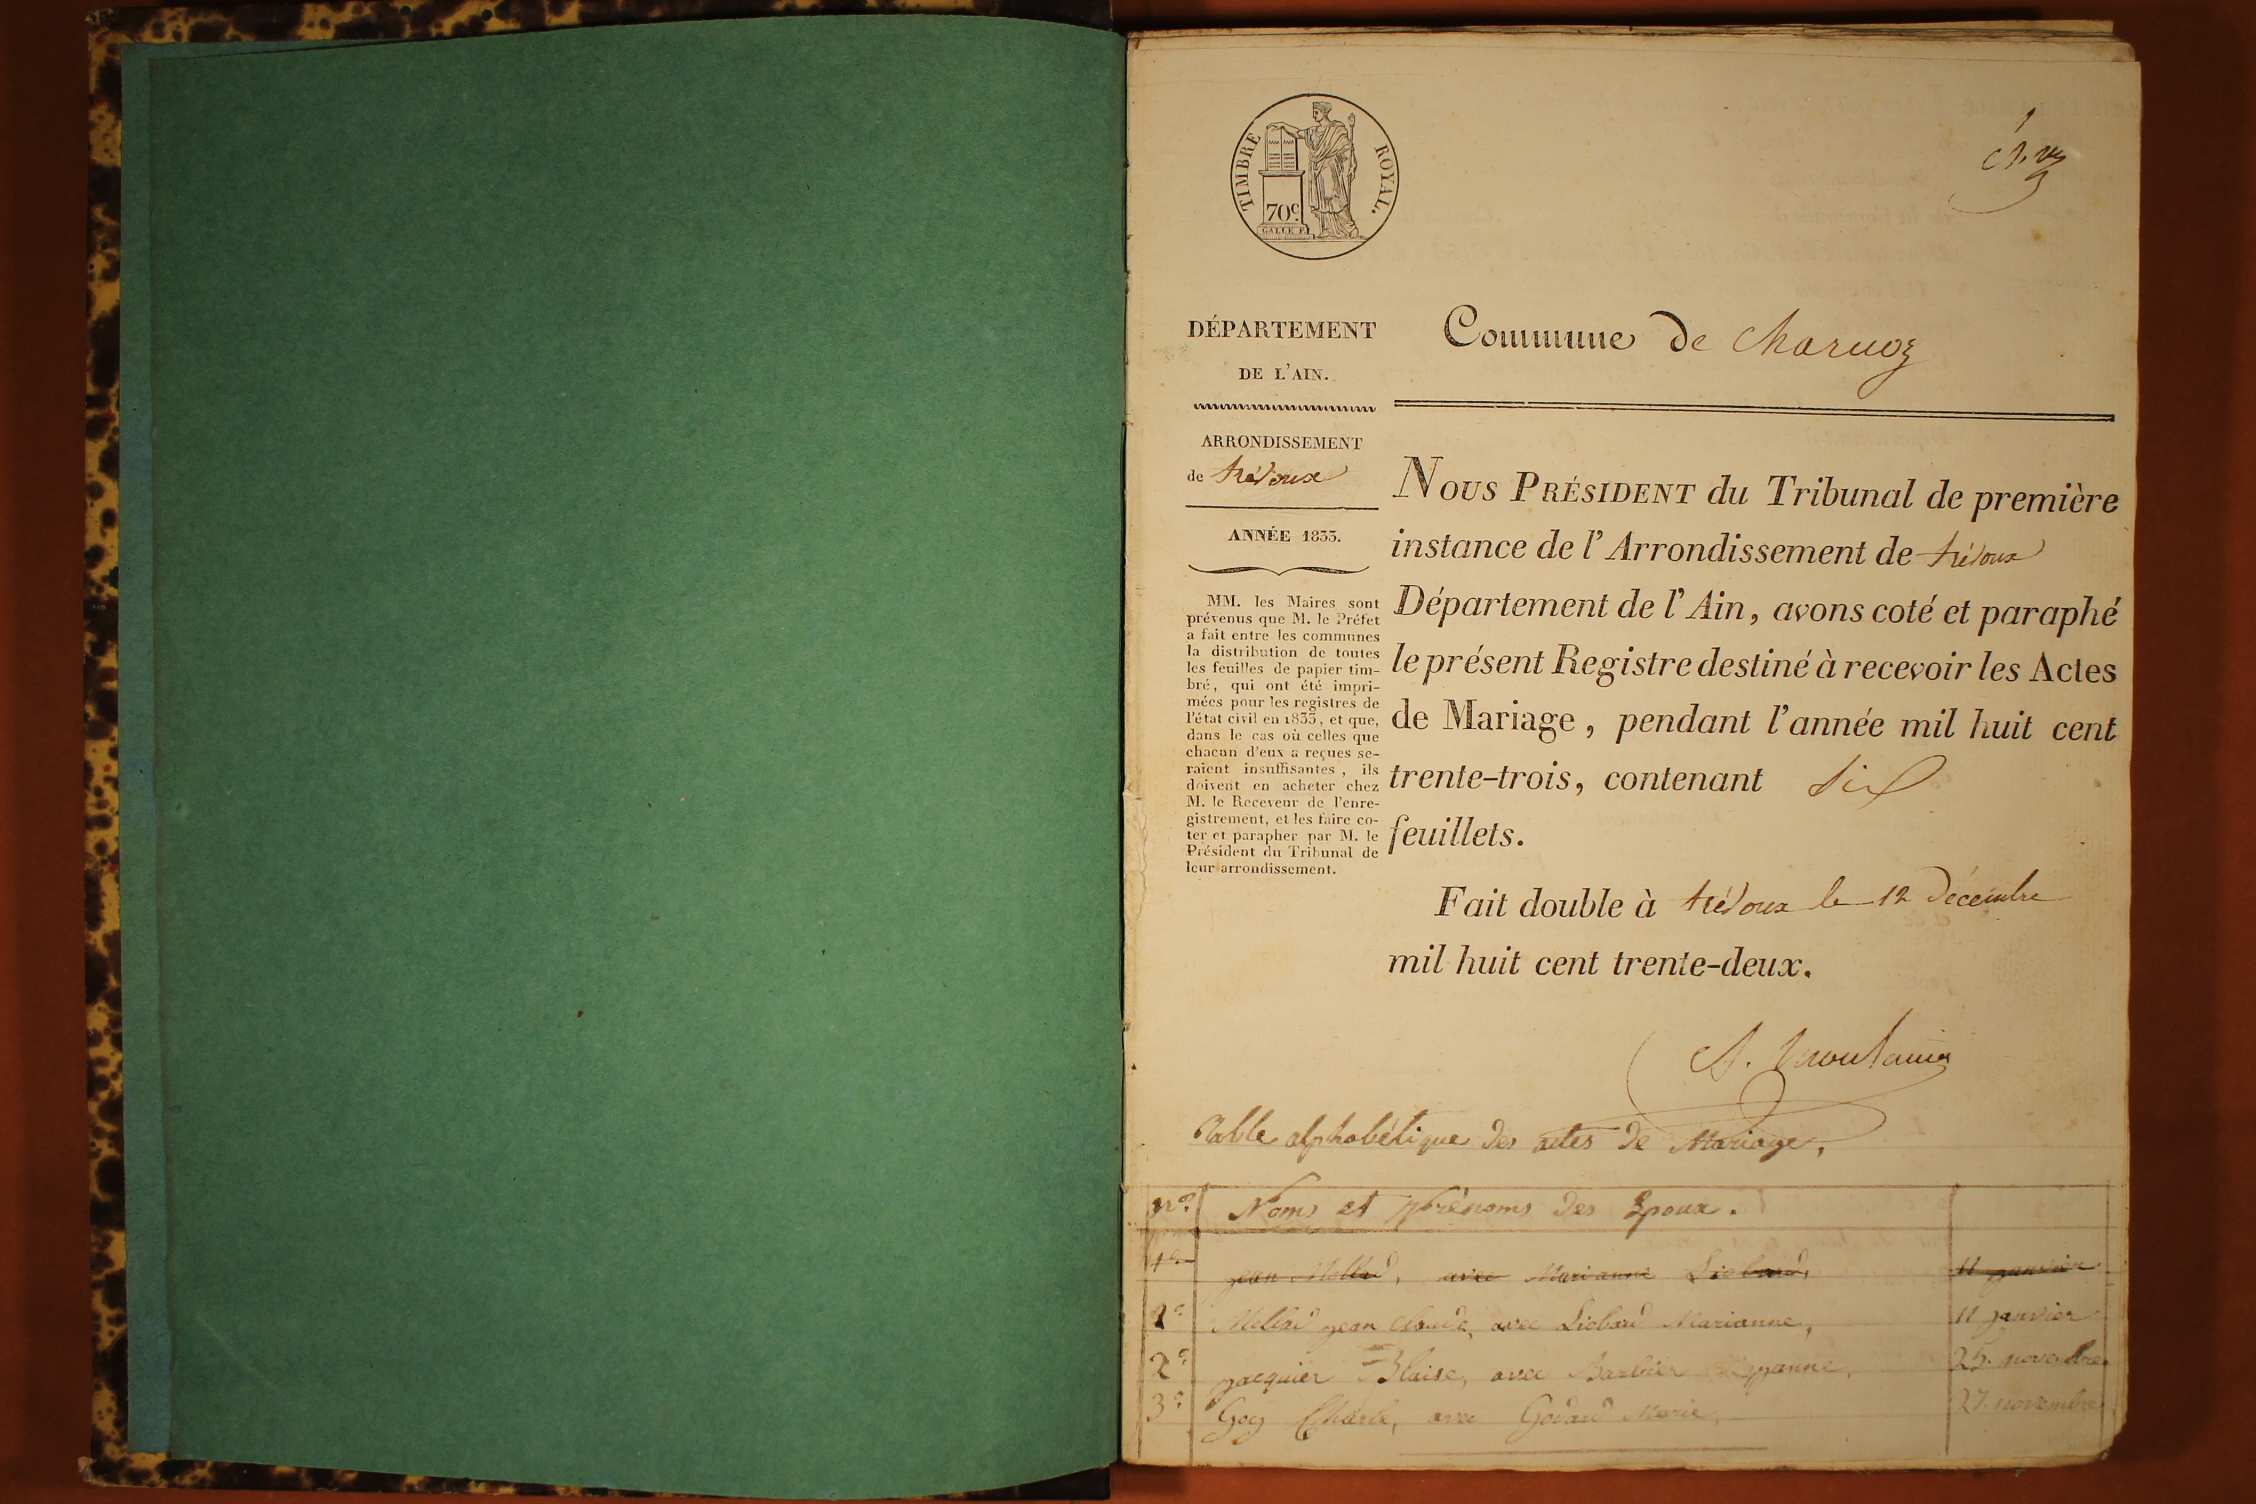 1
TIMBRE ROYAL.
70c.
GALLE F.
DÉPARTEMENT
DE L'AIN.
ARRONDISSEMENT
de trévoux
ANNÉE 1833.
MM. les Maires sont
prévenus que M. le Préfet
a fait entre les communes
la distribution de toutes
les feuilles de papier tim-
bré, qui ont été impri-
mées pour les registres de
l'état civil en 1833, et que,
dans le cas où celles que
chacun d'eux a reçues se-
raient insuffisantes, ils
doivent en acheter chez
M. le Receveur de l'enre-
gistrement, et les faire co-
ter et parapher par M. le
Président du Tribunal de
leur arrondissement.
Commune de Charnoz
NOUS PRÉSIDENT du Tribunal de première
instance de l'Arrondissement de trévoux
Département de l'Ain, avons coté et paraphé
le présent Registre destiné à recevoir les Actes
de Mariage, pendant l'année mil huit cent
trente-trois, contenant Six
feuillets.
Fait double à trévoux le 12 Décembre
mil huit cent trente-deux.
Table alphabétique des actes de Mariage,
nos Noms et prénoms des Epoux.
1o jean Mollard, avec Marianne Liobard, 11 janvier
1o jean Claude, avec Liobard Marianne, 11 janvier
2o jacquier Blaise, avec Barbier 25 novembre
3o Goy Charle, avec Godard Marie, 27 novembre